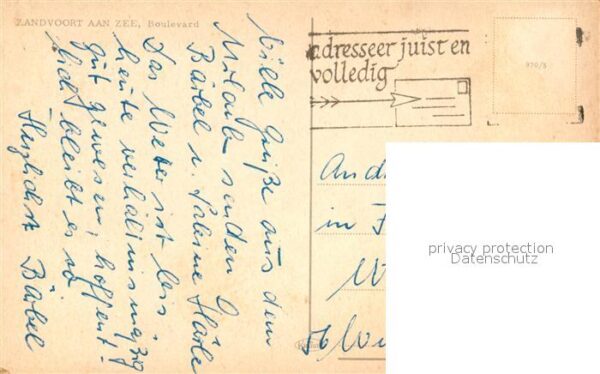 ZANDVOORT AAN ZEE, Boulevard
Viele Grüße aus dem
Urlaub senden
Bärbel u.
Das Wetter ist bis
heute verhältnismäßig
gut gewesen, hoffent-
lich bleibt es so
Herzlichst Bärbel
adresseer juist en
volledig
970/5
in
privacy protection
Datenschutz